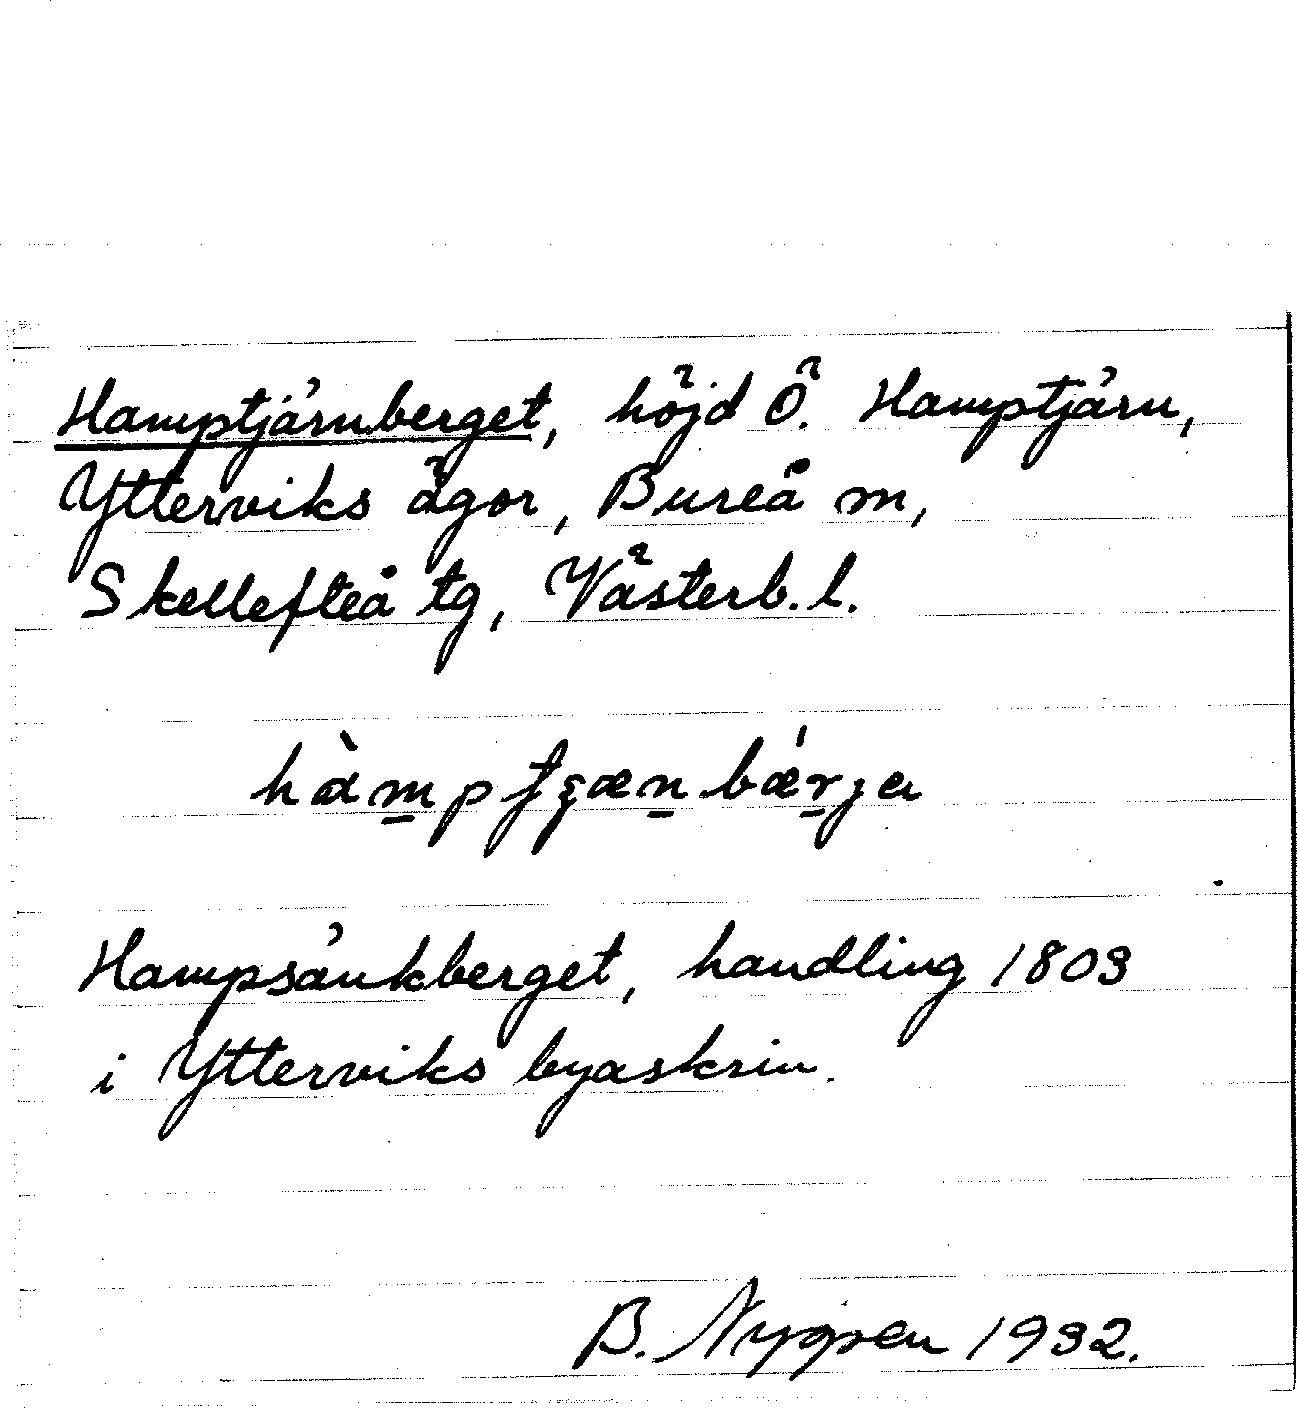 Hamptjärnberget, höjd Ö. Hamptjärn,
Ytterviks ägor, Bureå m,
Skellefteå tg, Västerb. l.
Hampsänkberget, handling 1803
i Ytterviks byaskrin.
B. Nygren 1932.